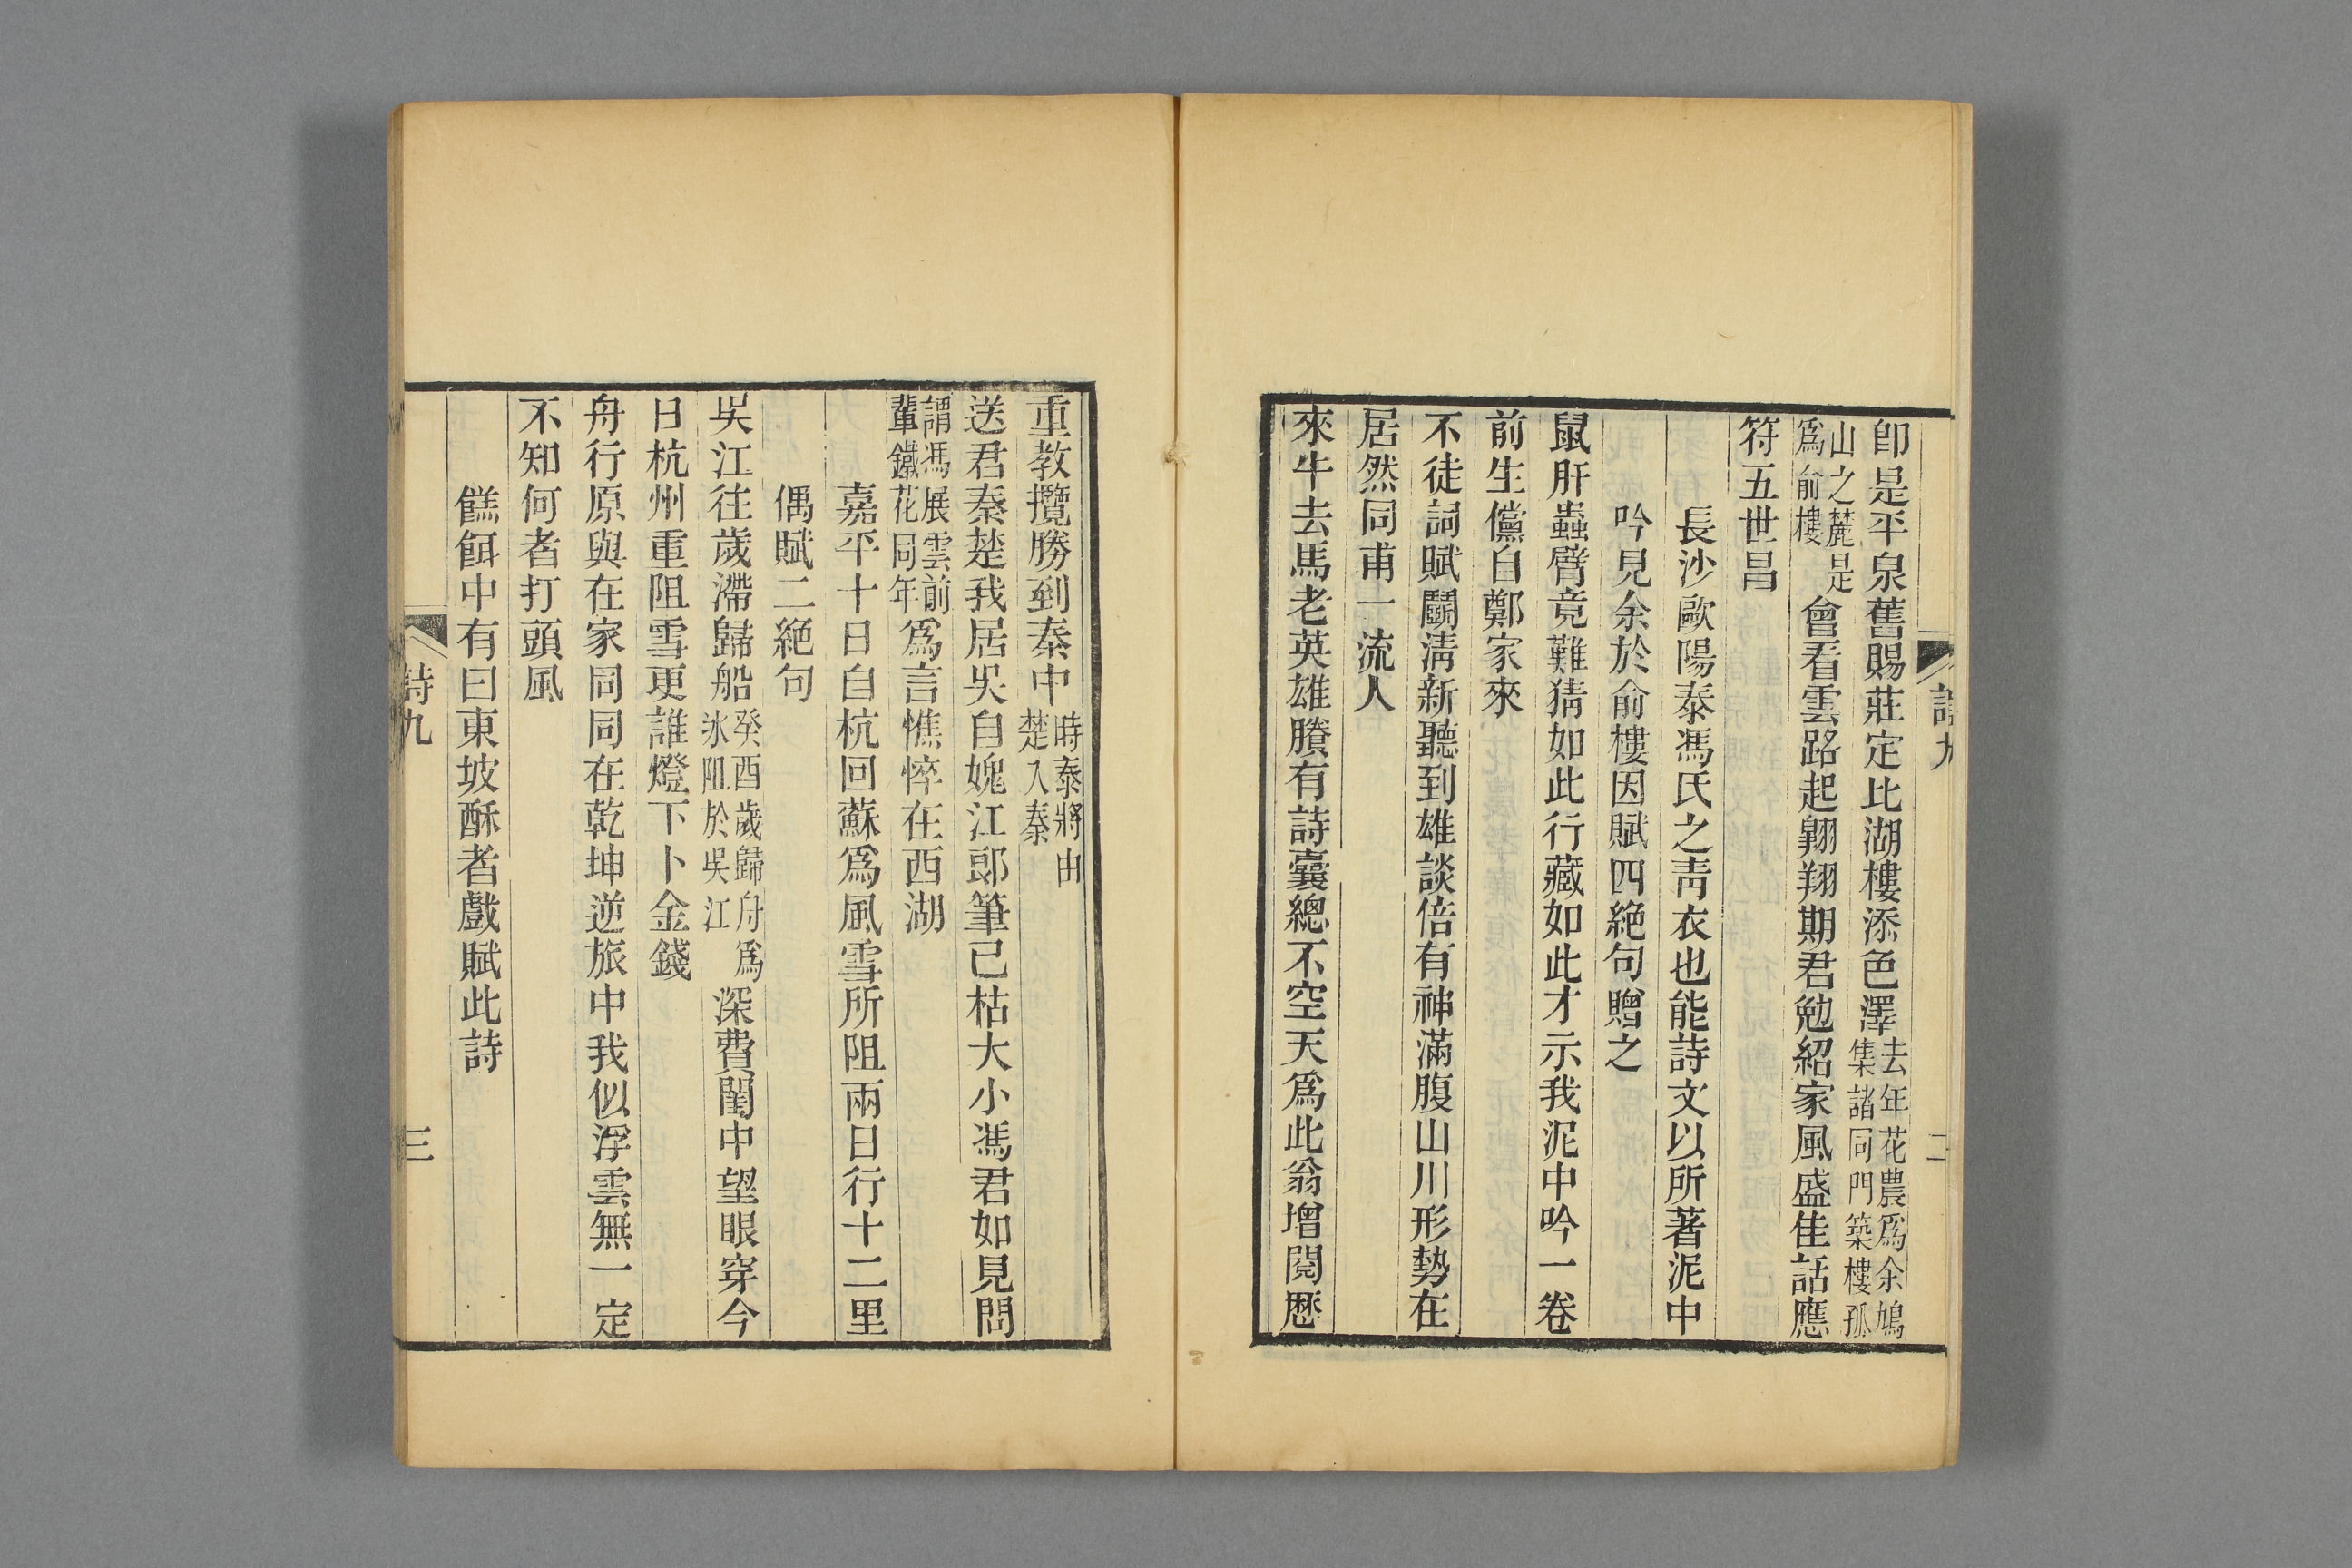 詩九
二
卽是平泉舊賜莊定比湖樓添色澤去年花農爲余鳩集諸同門築樓孤
山之麓是爲俞樓會看雲路起翺翔期君勉紹家風盛佳話應
符五世昌
長沙歐陽泰馮氏之靑衣也能詩文以所著泥中
吟見余於俞樓因賦四絶句贈之
鼠肝蟲臂竟難猜如此行藏如此才示我泥中吟一卷
前生儻自鄭家來
不徒詞賦鬭淸新聽到雄談倍有神滿腹山川形勢在
居然同甫一流人
來牛去馬老英雄賸有詩囊總不空天爲此翁增閱歷
重教攬勝到秦中時泰將由楚入秦
送君秦楚我居吳自媿江郎筆已枯大小馮君如見問
謂馮展雲前輩鐵花同年爲言憔悴在西湖
嘉平十日自杭回蘇爲風雪所阻兩日行十二里
偶賦二絶句
吳江往歲滯歸船癸酉歲歸舟爲氷阻於吳江深費閨中望眼穿今
日杭州重阻雪更誰燈下卜金錢
舟行原與在家同同在乾坤逆旅中我似浮雲無一定
不知何者打頭風
餻餌中有曰東坡酥者戲賦此詩
詩九
三